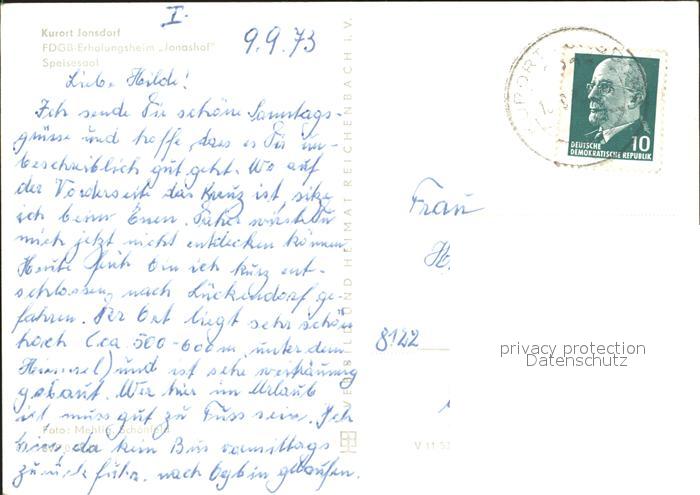 I.
Kurort Jonsdorf
FDGB-Erholungsheim „Jonashof"
Speisesaal
9.9.73
Liebe Hilde!
Ich sende Dir schöne Sonntags-
grüsse und hoffe, dass es Dir un-
beschreiblich gut geht. Wo auf
der Vorderseite das Kreuz ist, sitze
ich beim Essen. Daher wirst du
mich jetzt nicht entdecken können.
Heute früh bin ich kurz ent-
schlossen nach Lückendorf ge-
fahren. Der Ort liegt sehr schön
hoch (ca. 500-600m, unter dem
Himmel) und ist sehr
gebaut. Wer hier im Urlaub
ist muss gut zu Fuss sein. Ich
bin, da kein Bus vormittags
zurück fuhr, nach Oybin gelaufen.
Foto: Mehlig, Schönfeld
VEB BILD UND HEIMAT REICHENBACH I. V.
V 11-5
KURORT
DEUTSCHE
DEMOKRATISCHE REPUBLIK
10
Frau
H.
8122
privacy protection
Datenschutz